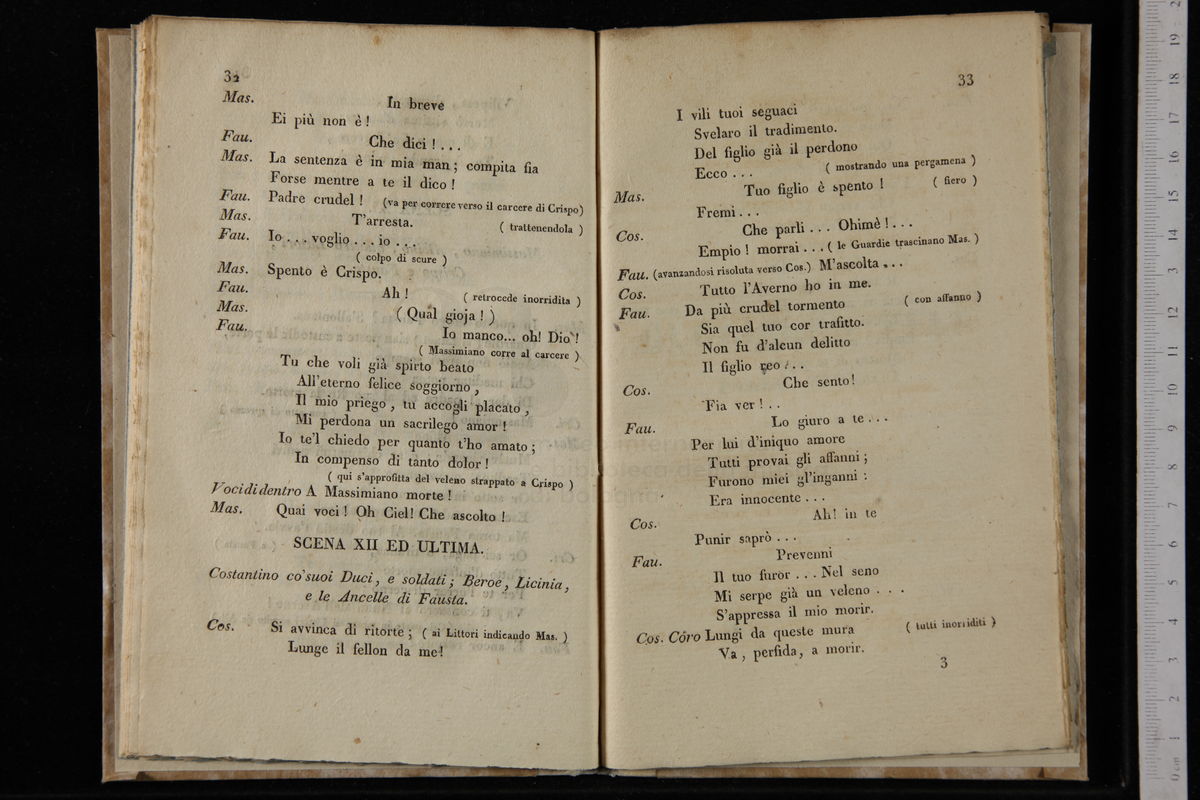 32
Mas. In breve
Ei più non è !
Fau. Che dici ! . . .
Mas. La sentenza è in mia man ; compita fia
Forse mentre a te il dico !
Fau. Padre crudel ! (va per correre verso il carcere di Crispo)
Mas. T'arresta. ( trattenendola )
Fau. Io . . . voglio . . . io . . .
( colpo di scure )
Mas. Spento è Crispo.
Fau. Ah ! ( retrocede inorridita )
Mas. ( Qual gioja ! )
Fau. Io manco... oh! Dio !
( Massimiano corre al carcere )
Tu che voli già spirto beato
All'eterno felice soggiorno ,
Il mio priego , tu accogli placato ,
Mi perdona un sacrilego amor !
Io te'l chiedo per quanto t'ho amato ;
In compenso di tanto dolor !
( qui s'approfitta del veleno strappato a Crispo )
Voci di dentro A Massimiano morte !
Mas. Quai voci ! Oh Ciel! Che ascolto !
SCENA XII ED ULTIMA.
Costantino co'suoi Duci, e soldati ; Beroe, Licinia,
e le Ancelle di Fausta.
Cos. Si avvinca di ritorte ; ( ai Littori indicando Mas. )
Lunge il fellon da me!
33
I vili tuoi seguaci
Svelaro il tradimento.
Del figlio già il perdono
Ecco . . . ( mostrando una pergamena )
Mas. Tuo figlio è spento ! ( fiero )
Fremi . . .
Cos. Che parli . . . Ohimè ! . . .
Empio ! morrai . . . ( le Guardie trascinano Mas. )
Fau. (avanzandosi risoluta verso Cos.) M'ascolta . . .
Cos. Tutto l'Averno ho in me.
Fau. Da più crudel tormento ( con affanno )
Sia quel tuo cor trafitto.
Non fu d'alcun delitto
Il figlio reo . . .
Cos. Che sento!
Fia ver ! . .
Fau. Lo giuro a te . . .
Per lui d'iniquo amore
Tutti provai gli affanni ;
Furono miei gl'inganni :
Era innocente . . .
Cos. Ah! in te
Punir saprò . . .
Fau. Prevenni
Il tuo furor . . . Nel seno
Mi serpe già un veleno . . .
S'appressa il mio morir.
Cos. Córo Lungi da queste mura ( tutti inorriditi )
Va , perfida, a morir.
3